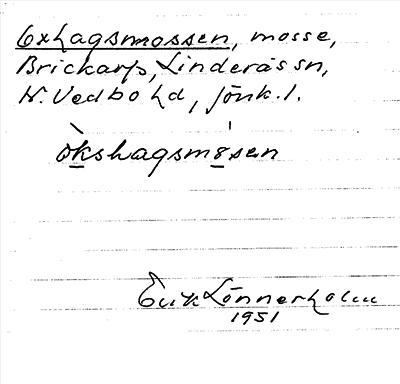 Oxhagsmossen, mosse,
Brickarp, Linderås sn,
N. Vedbo hd, Jönk. l.
ò̱kshagsmo̱̍sen
Erik Lönnerholm
1951